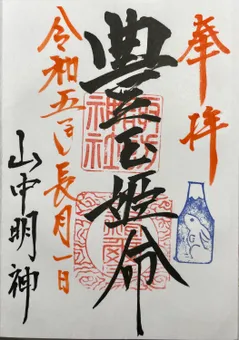 奉拝
豊玉姫命
令和五年長月一日
山中明神